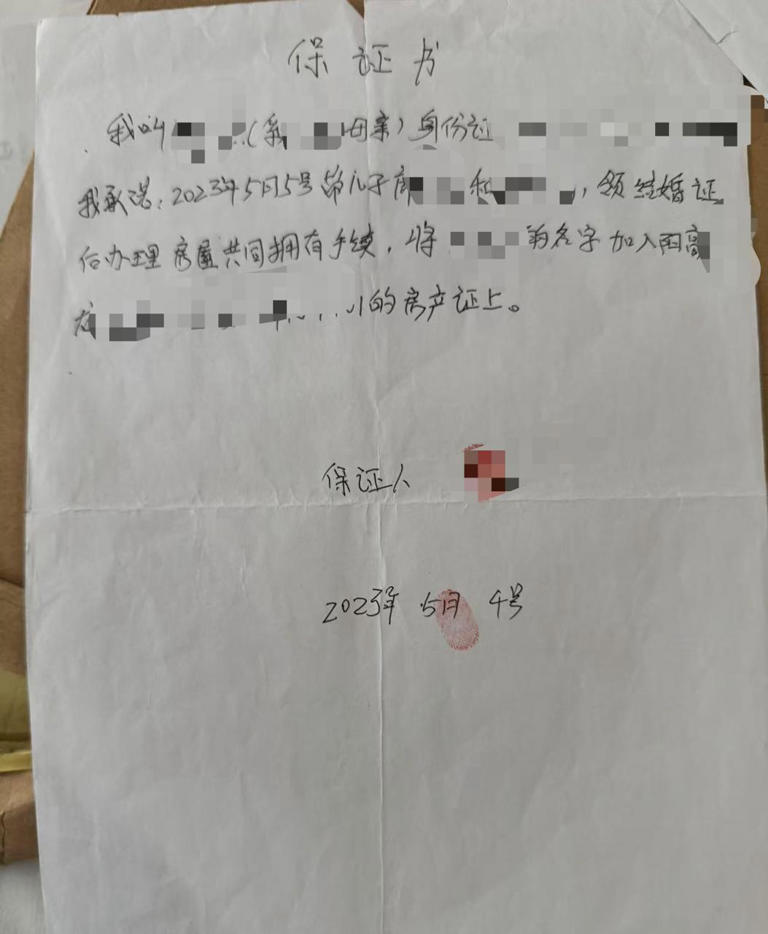 保证书
我叫（系母亲）身份证
我承诺：2023年5月5号 儿子席 和 ，领结婚证
后办理房屋共同拥有手续，将 的名字加入阳高
龙 的房产证上。
保证人
2023年 5月 4号